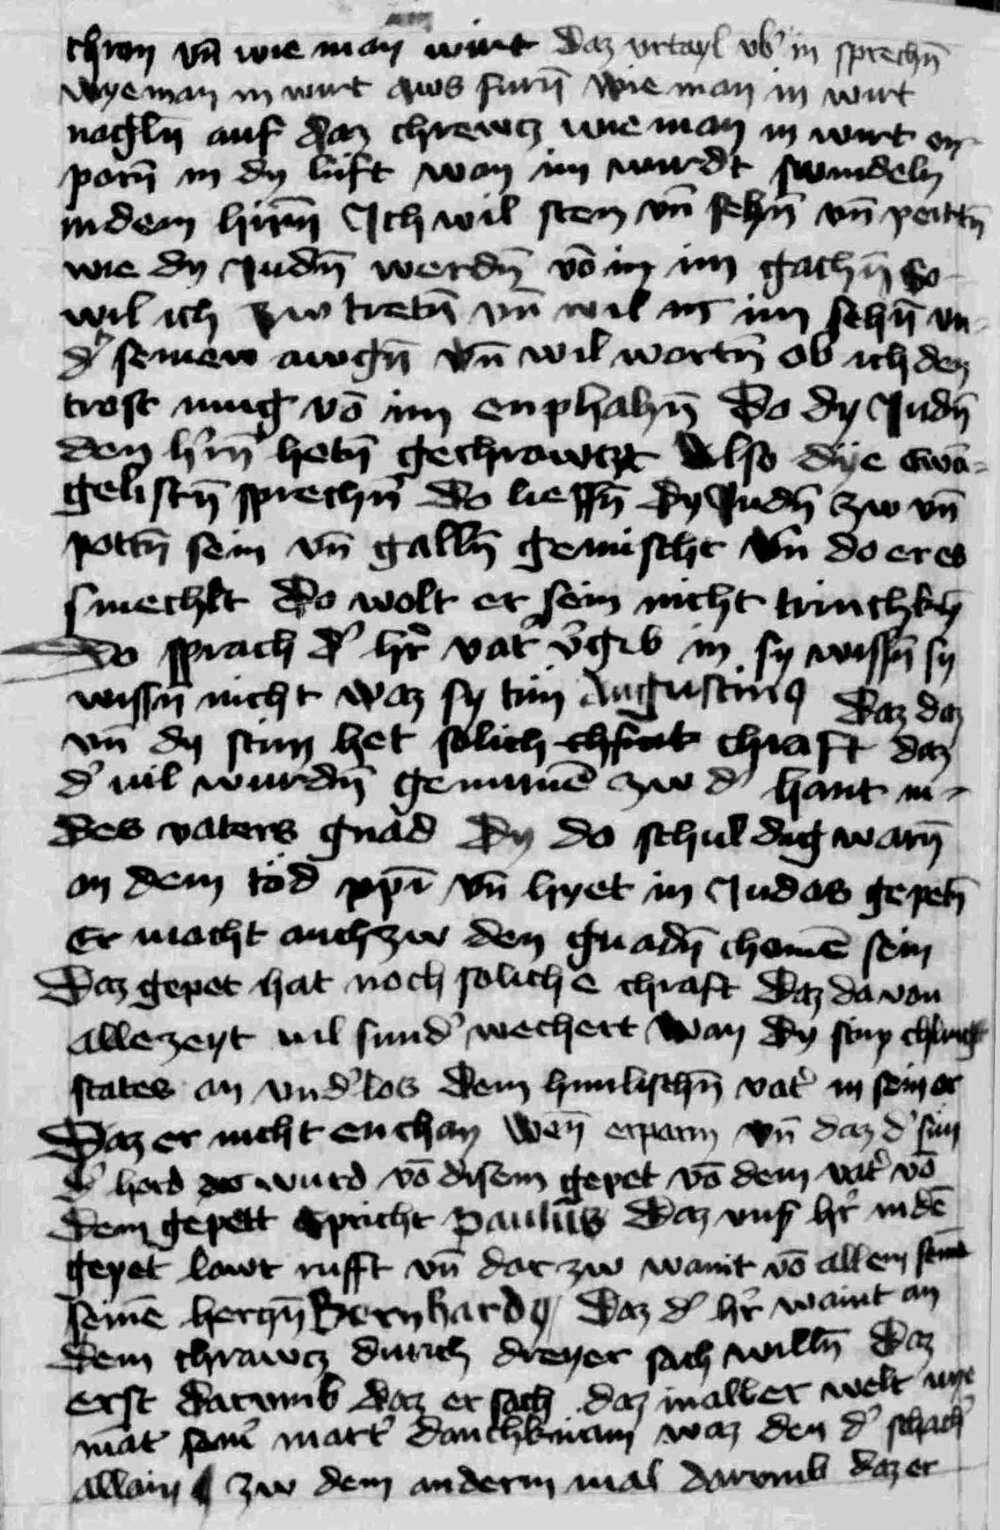 chron vn̄ wie man wirt daz vrtayl vb' in sprechn̄
wye man in wirt aws furn̄ wie man in wirt
nagln̄ auf daz chrewcz wie man in wirt er
porn̄ in dy lüft wan im wirdt swindeln
in dem hirn̄ Ich wil sten vn̄ sehn̄ vn̄ peittn̄
wie dy Judn̄ werdn̄ vō im gachn̄ so
wil ich zw tretn̄ vn̄ wil in im sehn̄ vn
d' seinew awgn̄ vn̄ wil wartn̄ ob ich den
trost mug vō im enphahn̄ Do dy Judn̄
den h'rn̄ hetn̄ gechrawczt Also dye ewā
gelistn̄ sprechn̄ do lieffn̄ dy Judn̄ zw vn̄
pottn̄ sein vn̄ galln̄ gemischt vn̄ do er es
smechkt do wolt er sein nicht trinchkn̄
Do sprach d' hr̄ vat' v'gib in sy wissn̄ sy
wissn̄ nicht waz sy tun Augustin9 daz daz
vn̄ dy stim het solich chraft daz
d' uil wurdn̄ genumē zw d' hant in
des vaters gnad dy do schuldig warn̄
an dem töd xp̄i vn̄ hyet in Judas gepetn̄
Er macht auch zw den gnadn̄ chomē sein
Daz gepet hat noch soliche chraft daz da von
alle zeyt uil sund' wechert wan dy stim
states an vnd'los dem himlischn̄ vat' in sein or
Daz er nicht enchan wen̄ erparm vn̄ daz d' sun
d' hord wurd vō disem gepet vō dem vat' vō
dem gepett spricht paulus daz vns' hr̄ in dē
gepet lawt rufft vn̄ dar zw waint vō allem
seinē herczn̄ Bernhard9 daz d' hr̄ waint an
dem chrawcz durich dreyer sach willn̄ daz
erst darumb daz er sach daz in aller welt nye
māt sein' mart' danchknam waz den d' schach'
allain zw dem anderm mal darumb daz er